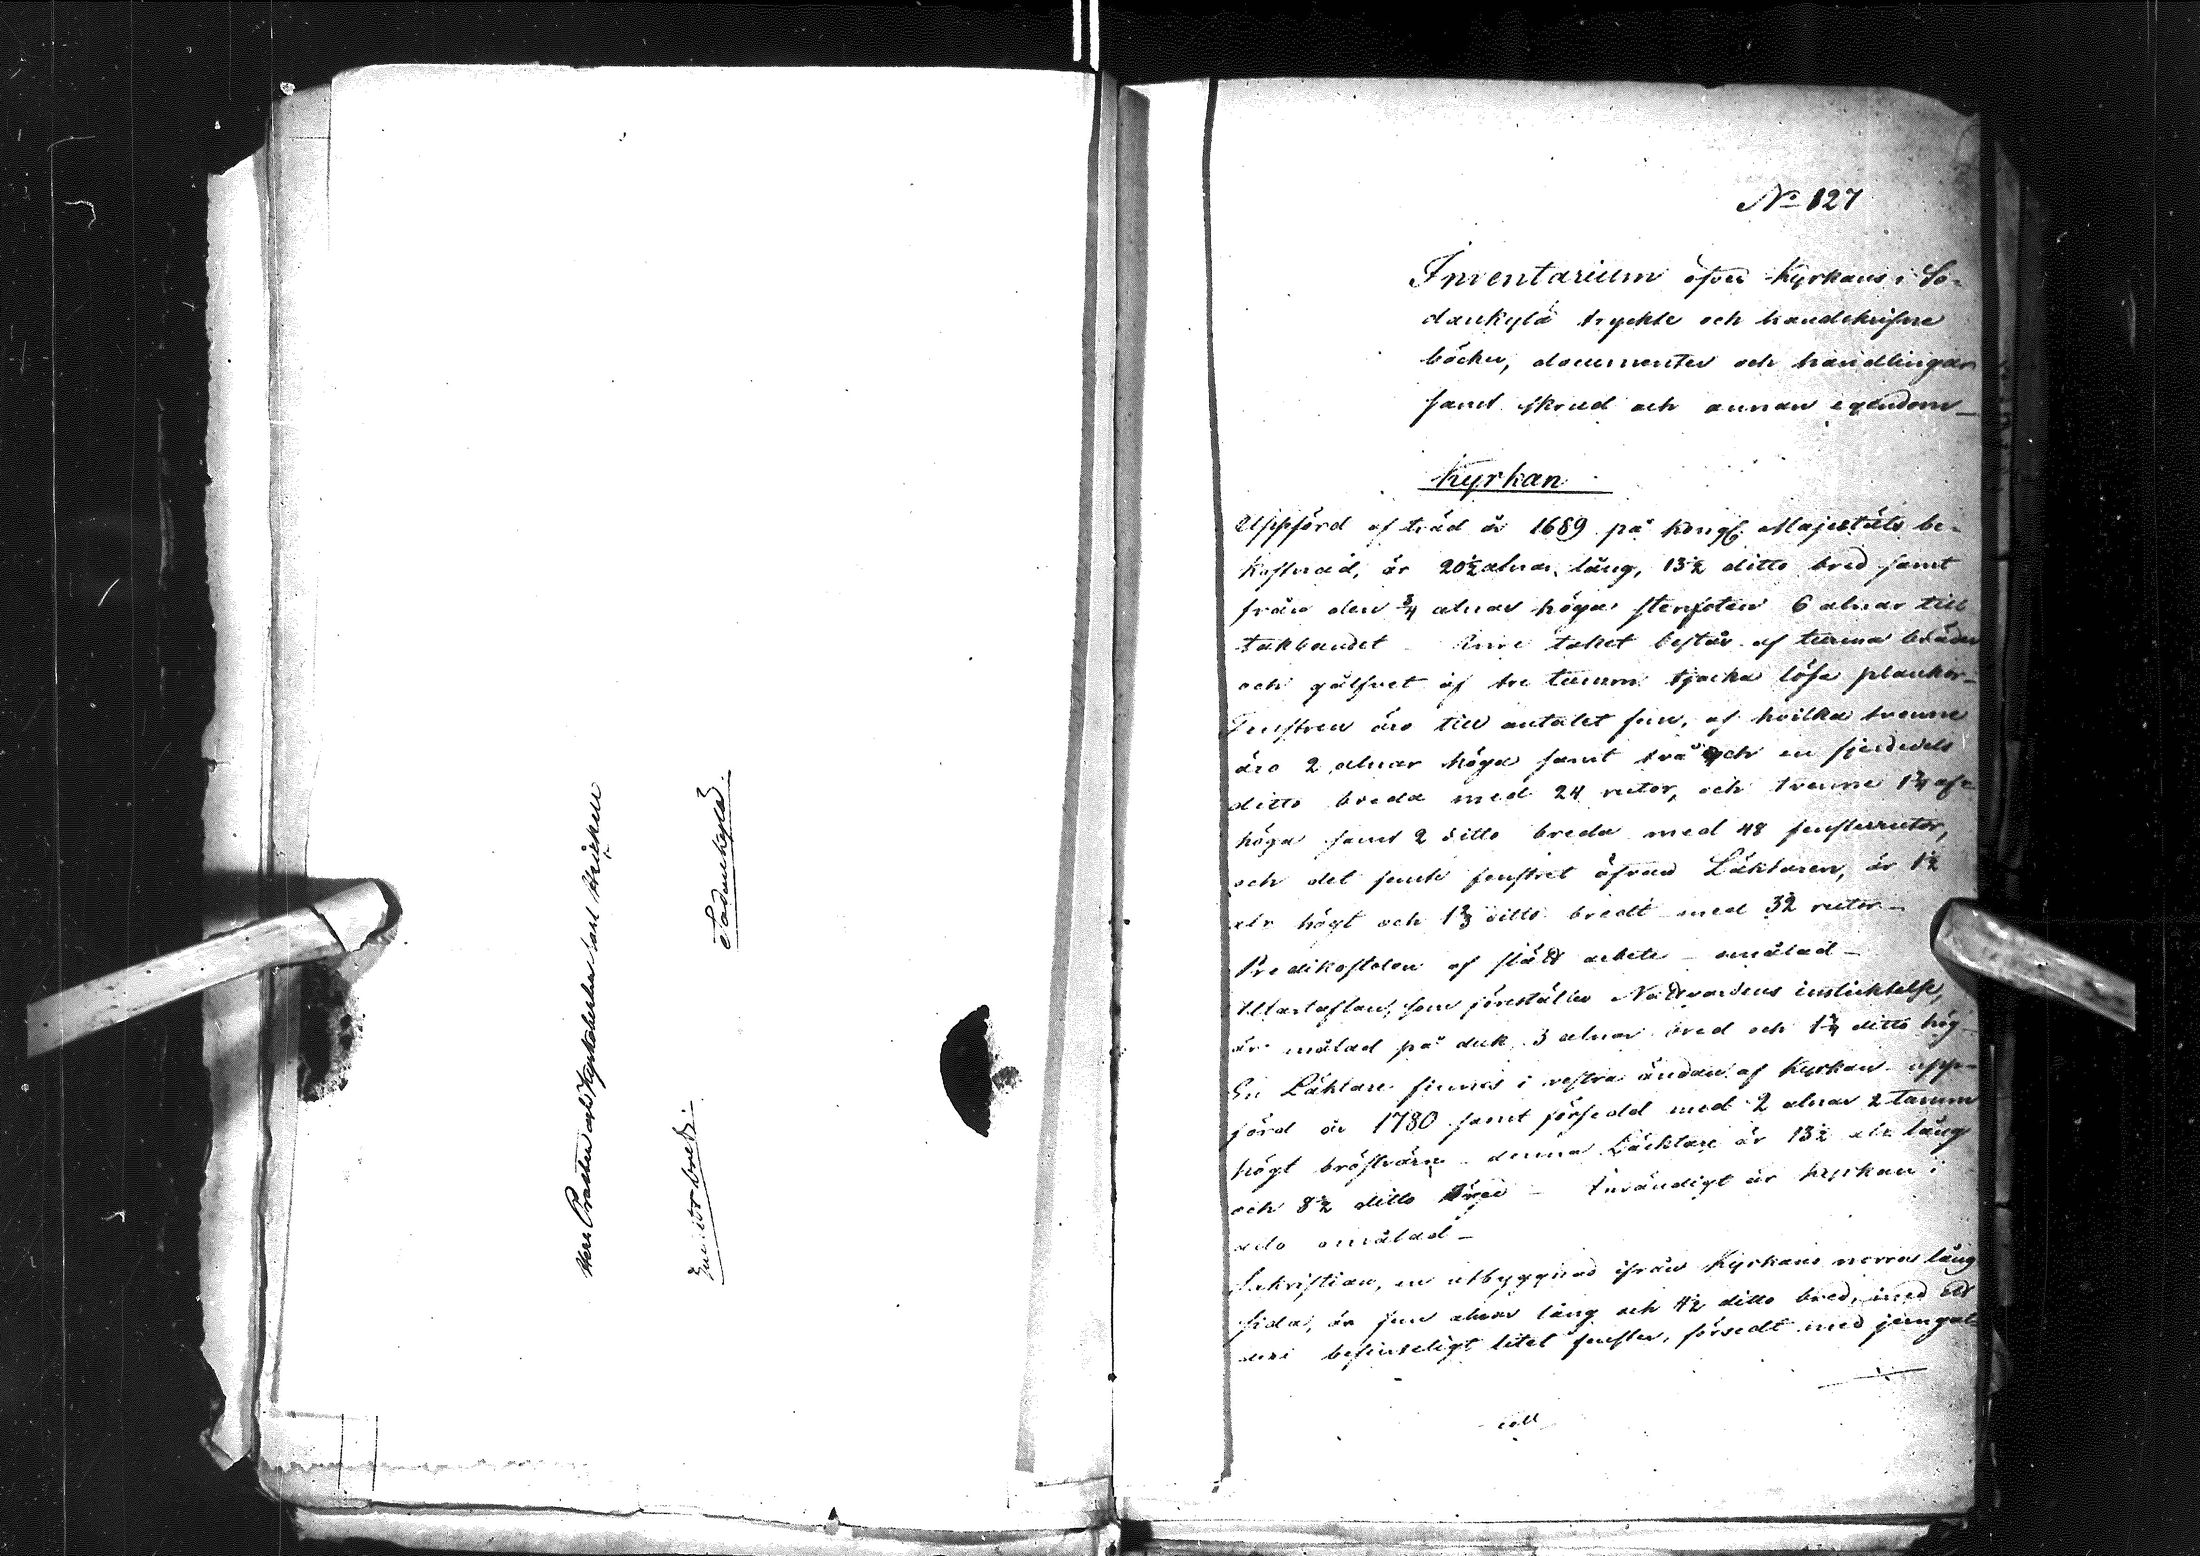 Herr Prosten och Kyrkoherden
Embetsbref.
Sodankylä.
No 127
Inventarium öfver Kyrkans i So-
dankylä tryckte och handskrifne
böcker, documenter och handlingar
samt skrud och annan egendom_
Kyrkan
Uppförd af träd år 1689 på Kongl. Majestäts be-
kostnad, är 20½ alnar lång, 13½ ditto bred samt
från den ¾ alnar höga stenfoten 6 alnar till
takbandet _ Inre taket består af tunna bräder
och gålfvet af tre tumm tjocka lösa plankor_
Fenstren äro till antalet fem, af hvilka tvenne
äro 2 alnar höga samt två och en fjerdedels
ditto breda med 24 rutor, och tvenne 1¾ aln
höga samt 2 ditto breda med 48 fensterrutor,
och det femte fenstret öfvan Läktaren, är 1½
aln högt och 1⅔ ditto bredt med 32 rutor_
Predikostolen af slätt arbete _ omålad _
Altartaflan, som föreställer Nattvardens instichtelse,
är målad på duk 3 alnar bred och 1¾ ditto hög_
En Läktare finnes i vestra ändan af Kyrkan upp-
förd år 1780 samt försedd med 2 alnar 2 tumm
högt bröstvärn _ denna Läcktare är 13½ aln lång
och 8½ ditto bred _ Invändigt är kyrkan i
öfrigt omålad _
Sakristian, en utbyggnad ifrån Kyrkans norra lång
sida, är fem alnar lång och 4½ ditto bred, med ett
deri befinteligt litet fenster, försedt med jerngal